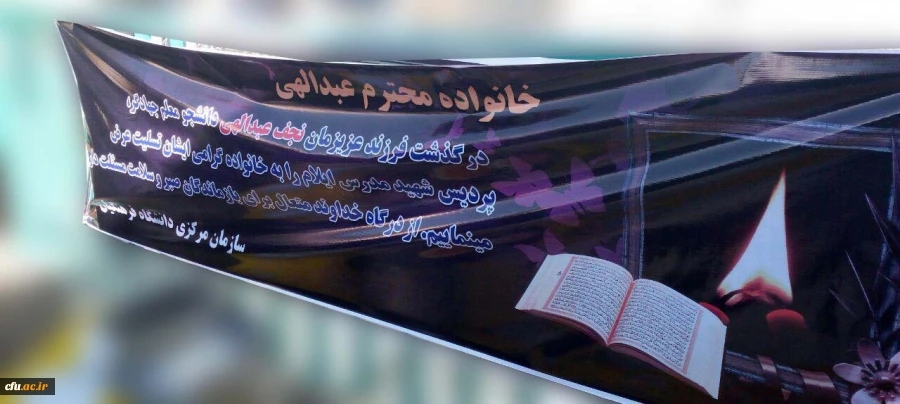 خانواده محترم عبدالهی
در گذشت فرزند عزیزمان نجف عبدالهی دانشجو معلم جهادگر،
پردیس شهید مدرس ایلام را به خانواده گرامی ایشان تسلیت عرض
مینماییم. از درگاه خداوند متعال برای بازماندگان صبر و سلامت مسئلت
سازمان مرکزی دانشگاه فرهنگیان
cfu.ac.ir